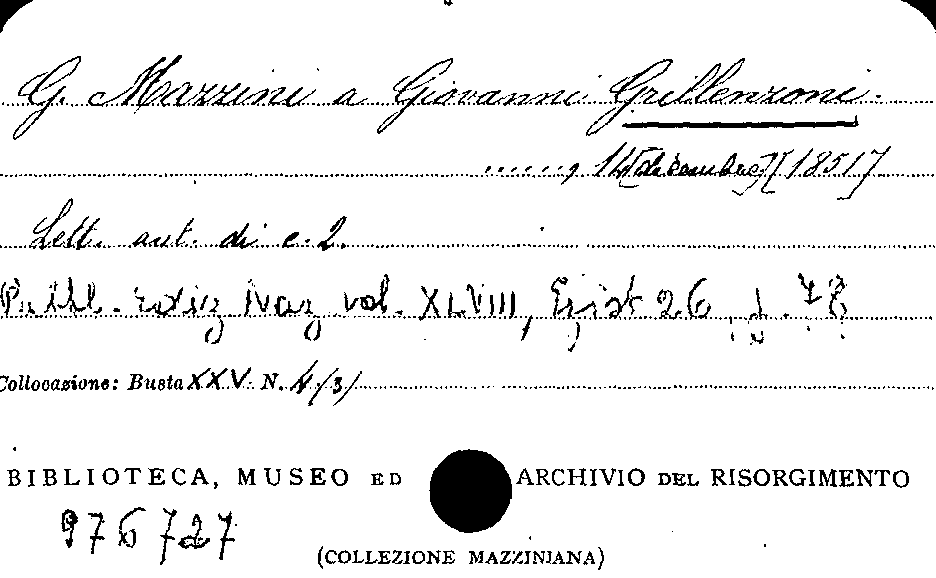 G. Mazzini a Giovanni Grillenzoni.
......, 14 [dicembre] [1851]
Lett. aut. di c. 2.
Pubbl. ediz Naz vol. XLVIII, Epist 26, p. 78
Collocazione: Busta XXV N. 4/3/
BIBLIOTECA, MUSEO ED ARCHIVIO DEL RISORGIMENTO
976727
(COLLEZIONE MAZZINIANA)